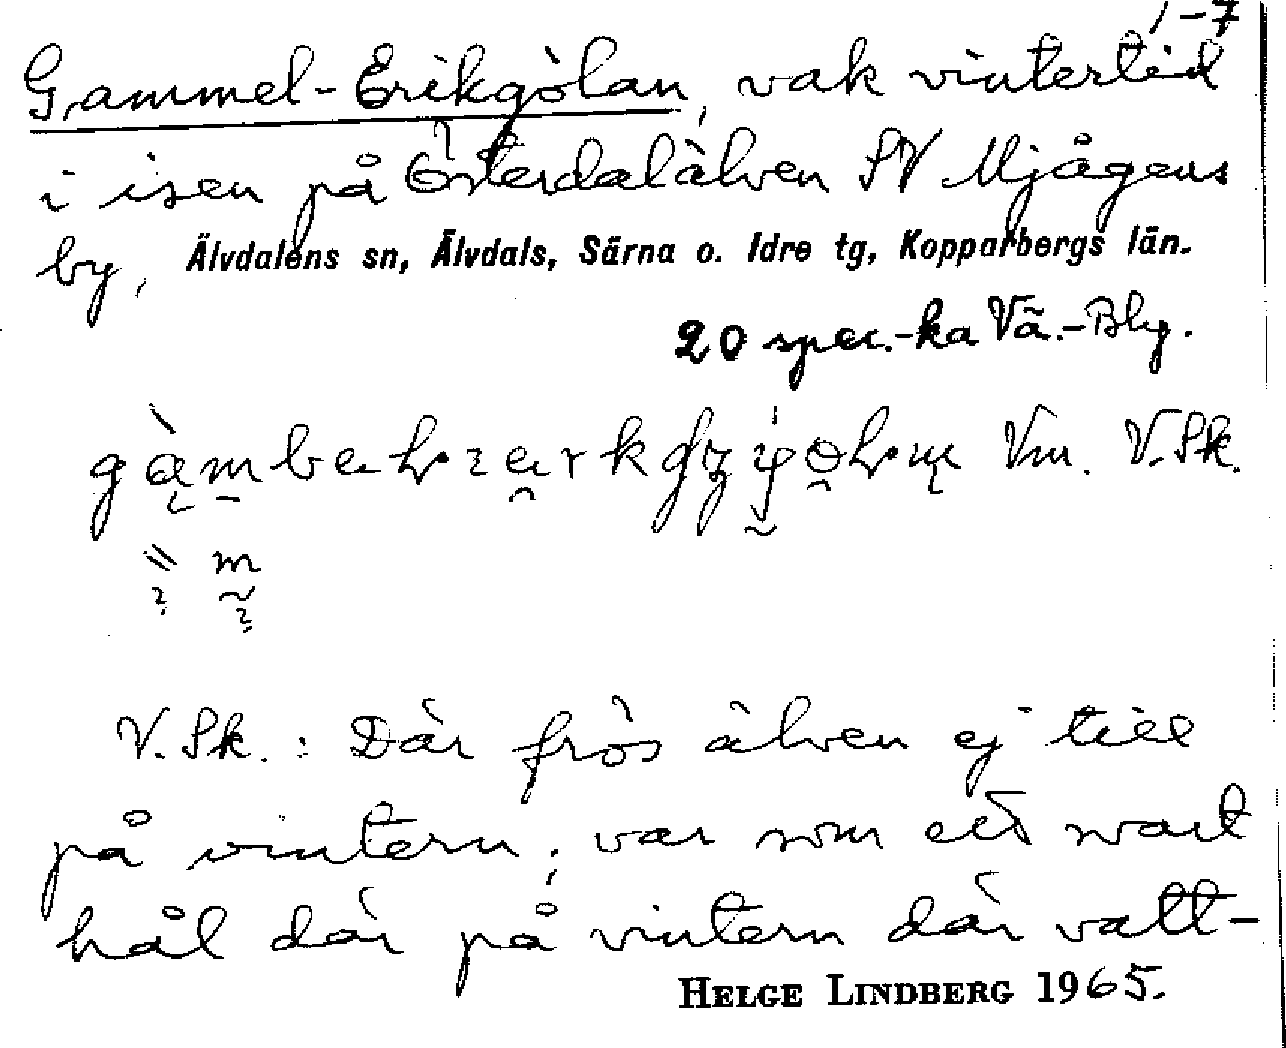 1-7
Gammel-Erikgölan, vak vintertid
i isen på Österdalälven SV Mjågens
by, Älvdalens sn, Älvdals, Särna o. Idre tg, Kopparbergs län.
20 spec.-ka Vä.-Blg.
Vm. V.Sk.
V.Sk.: Där frös älven ej till
på vintern; var som ett svart
hål där på vintern där vatt-
HELGE LINDBERG 1965.